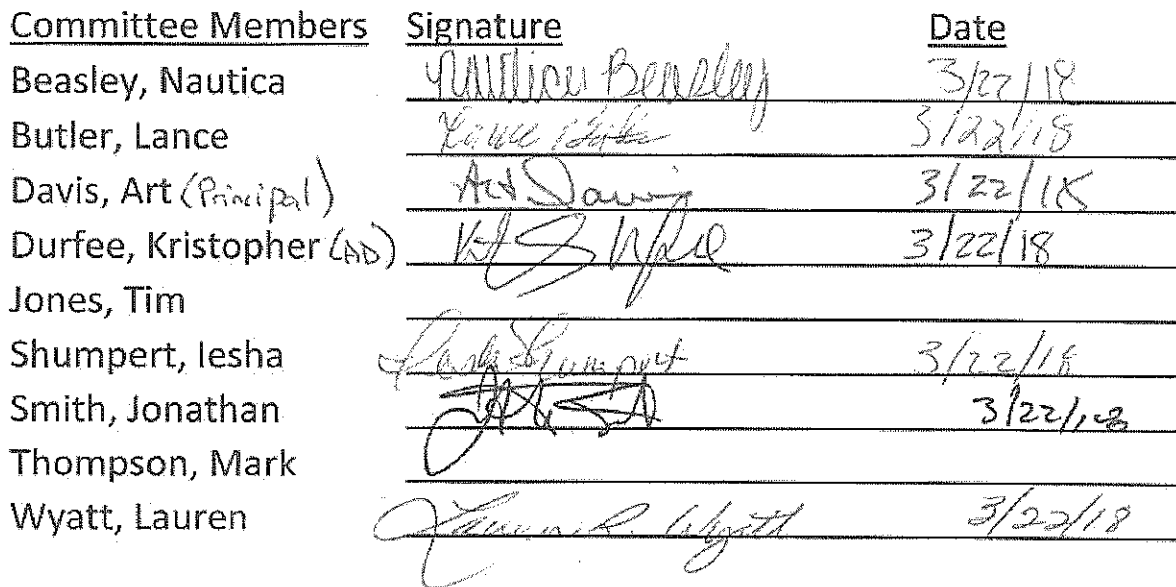 Committee Members Signature Date
Beasley, Nautica Nautica Beasley 3/22/18
Butler, Lance Lance 3/22/18
Davis, Art (Principal) Art Davis 3/22/18
Durfee, Kristopher (AD) 3/22/18
Jones, Tim
Shumpert, Iesha Iesha Shumpert 3/22/18
Smith, Jonathan 3/22/18
Thompson, Mark
Wyatt, Lauren Lauren R. Wyatt 3/22/18